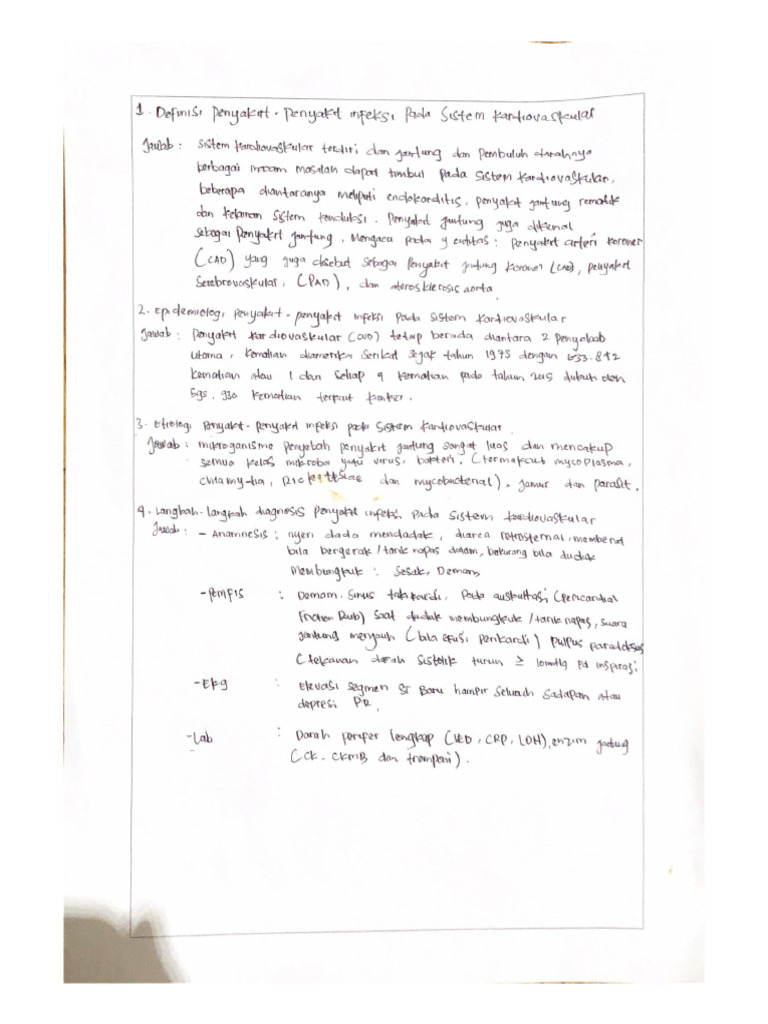 1. Definisi Penyakit - Penyakit infeksi Pada Sistem Kardiovaskular
Jawab : Sistem Kardiovaskular terdiri dan jantung dan Pembuluh darahnya
berbagai macam masalah dapat timbul pada sistem Kardiovaskular,
beberapa diantaranya meliputi endokarditis, penyakit jantung rematik
dan kelainan sistem konduksi. Penyakit jantung juga dikenal
sebagai Penyakit jantung, Mengacu pada 4 entitas : Penyakit arteri koroner
(CAD) yang juga disebut sebagai Penyakit jantung koroner (CHD), penyakit
Serebrovaskular, (PAD), dan aterosklerosis aorta.
2. Epidemiologi Penyakit - penyakit infeksi Pada Sistem Kardiovaskular
Jawab : Penyakit Kardiovaskular (CVD) tetap berada diantara 2 Penyebab
Utama, Kematian diamerika Serikat sejak tahun 1975 dengan 633.842
kematian atau 1 dari Setiap 4 kematian pada tahun 2015 diikuti oleh
595.930 kematian terkait kanker.
3. Etiologi Penyakit - Penyakit infeksi pada Sistem Kardiovaskular
Jawab : mikroganisme Penyebab penyakit jantung sangat luas dan mencakup
semua kelas mikroba yaitu virus, bakteri, (termaksut mycoplasma,
chlamy-dia, Rickettsiae dan mycobacterial), jamur dan parasit.
4. Langkah-langkah diagnosis Penyakit infeksi Pada Sistem Kardiovaskular
Jawab : - Anamnesis : nyeri dada mendadak, diarea retrosternal, memberat
bila bergerak / tarik napas dalam, berkurang bila duduk
Membungkuk : Sesak, Demam
- Pemfis : Demam. Sinus takikardi, Pada auskultasi (Pericardial
Friction Rub) Saat duduk membungkuk / tarik napas, suara
jantung menjauh (bila efusi perikardi) Pulpus paradoksus
(tekanan darah sistolik turun ≥ 10mmHg pd inspirasi
- Ekg : Elevasi segmen ST Baru hampir Seluruh Sadapan atau
depresi PR.
- Lab : Darah perifer lengkap (LED, CRP, LDH), enzim jantung
(CK - CKMB dan